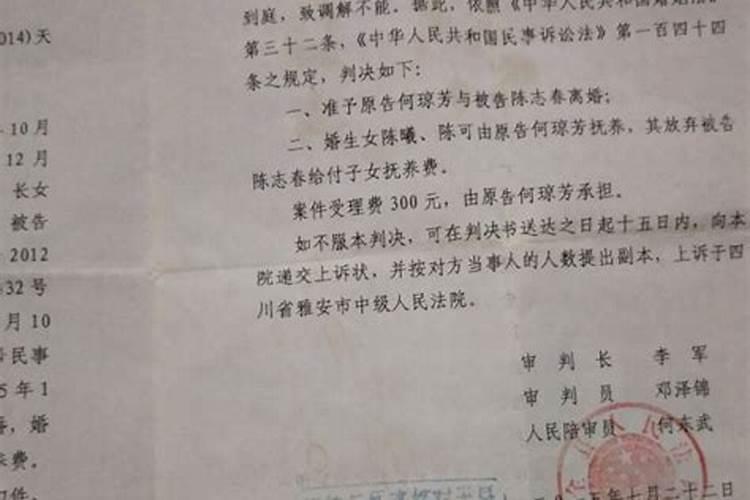 014)天
10月
12月
长女
被告
2012
32号
月10
民事
5年1
，婚
养费。
到庭，致调解不能。据此，依照《中华人民共和国婚姻法》
第三十二条，《中华人民共和国民事诉讼法》第一百四十四
条之规定，判决如下：
一、准予原告何琼芳与被告陈志春离婚；
二、婚生女陈曦、陈可由原告何琼芳抚养，其放弃被告
陈志春给付子女抚养费。
案件受理费300元，由原告何琼芳承担。
如不服本判决，可在判决书送达之日起十五日内，向本
院递交上诉状，并按对方当事人的人数提出副本，上诉于四
川省雅安市中级人民法院。
审 判 长 李 军
审 判 员 邓泽锦
人民陪审员 何东武
年七月二十二日